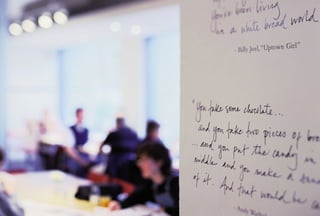 living
in a white bread world
- Billy Joel, "Uptown Girl"
"You take some chocolate...
and you take two pieces of
... and you put the candy in
middle and you make a
of it. And that would be
Andy